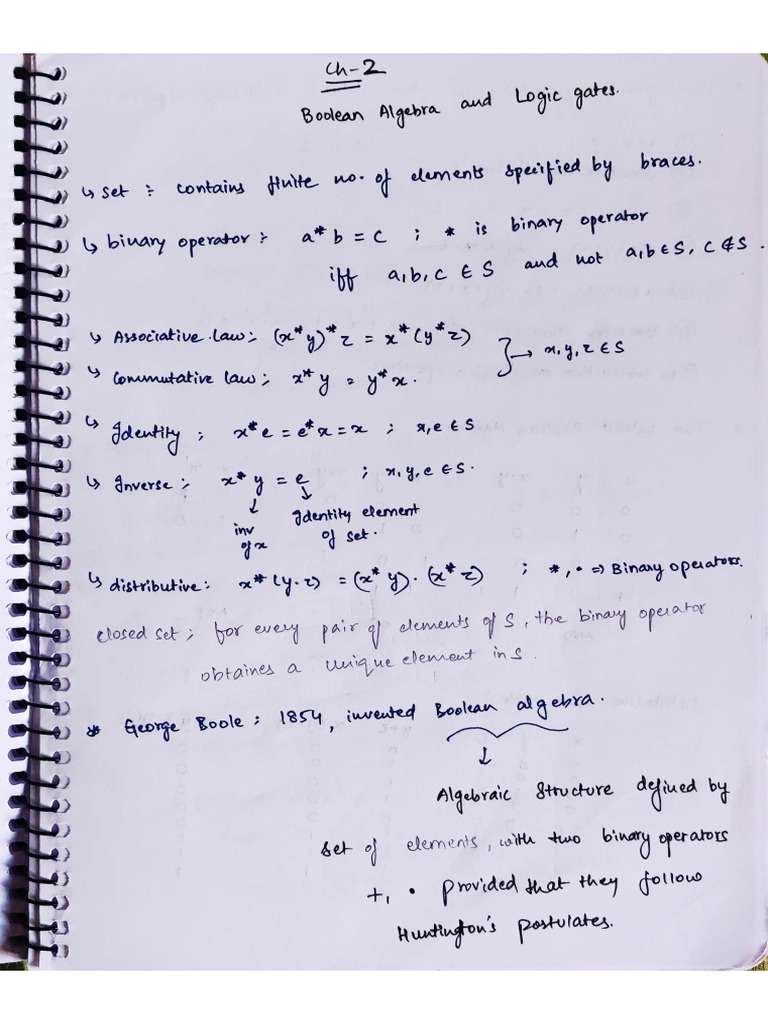 Ch-2
Boolean Algebra and Logic gates.
↳ set :- contains finite no. of elements specified by braces.
↳ binary operator :- a*b = c ; * is binary operator
iff a,b,c ∈ S and not a,b ∈ S, c ∉ S.
↳ Associative law:- (x*y)*z = x*(y*z)
} → x,y,z ∈ S
↳ Commutative law; x*y = y*x.
↳ Identity ; x*e = e*x = x ; x,e ∈ S
↳ Inverse :- x*y = e ; x,y,e ∈ S.
↓ ↓
inv of x
Identity element of set.
↳ distributive: x*(y·z) = (x*y)·(x*z) ; *,· => Binary operators.
closed set ; for every pair of elements of S, the binary operator
obtaines a unique element in S.
* George Boole : 1854, invented Boolean algebra.
↓
Algebraic structure defined by
set of elements, with two binary operators
+, · provided that they follow
Huntington's postulates.